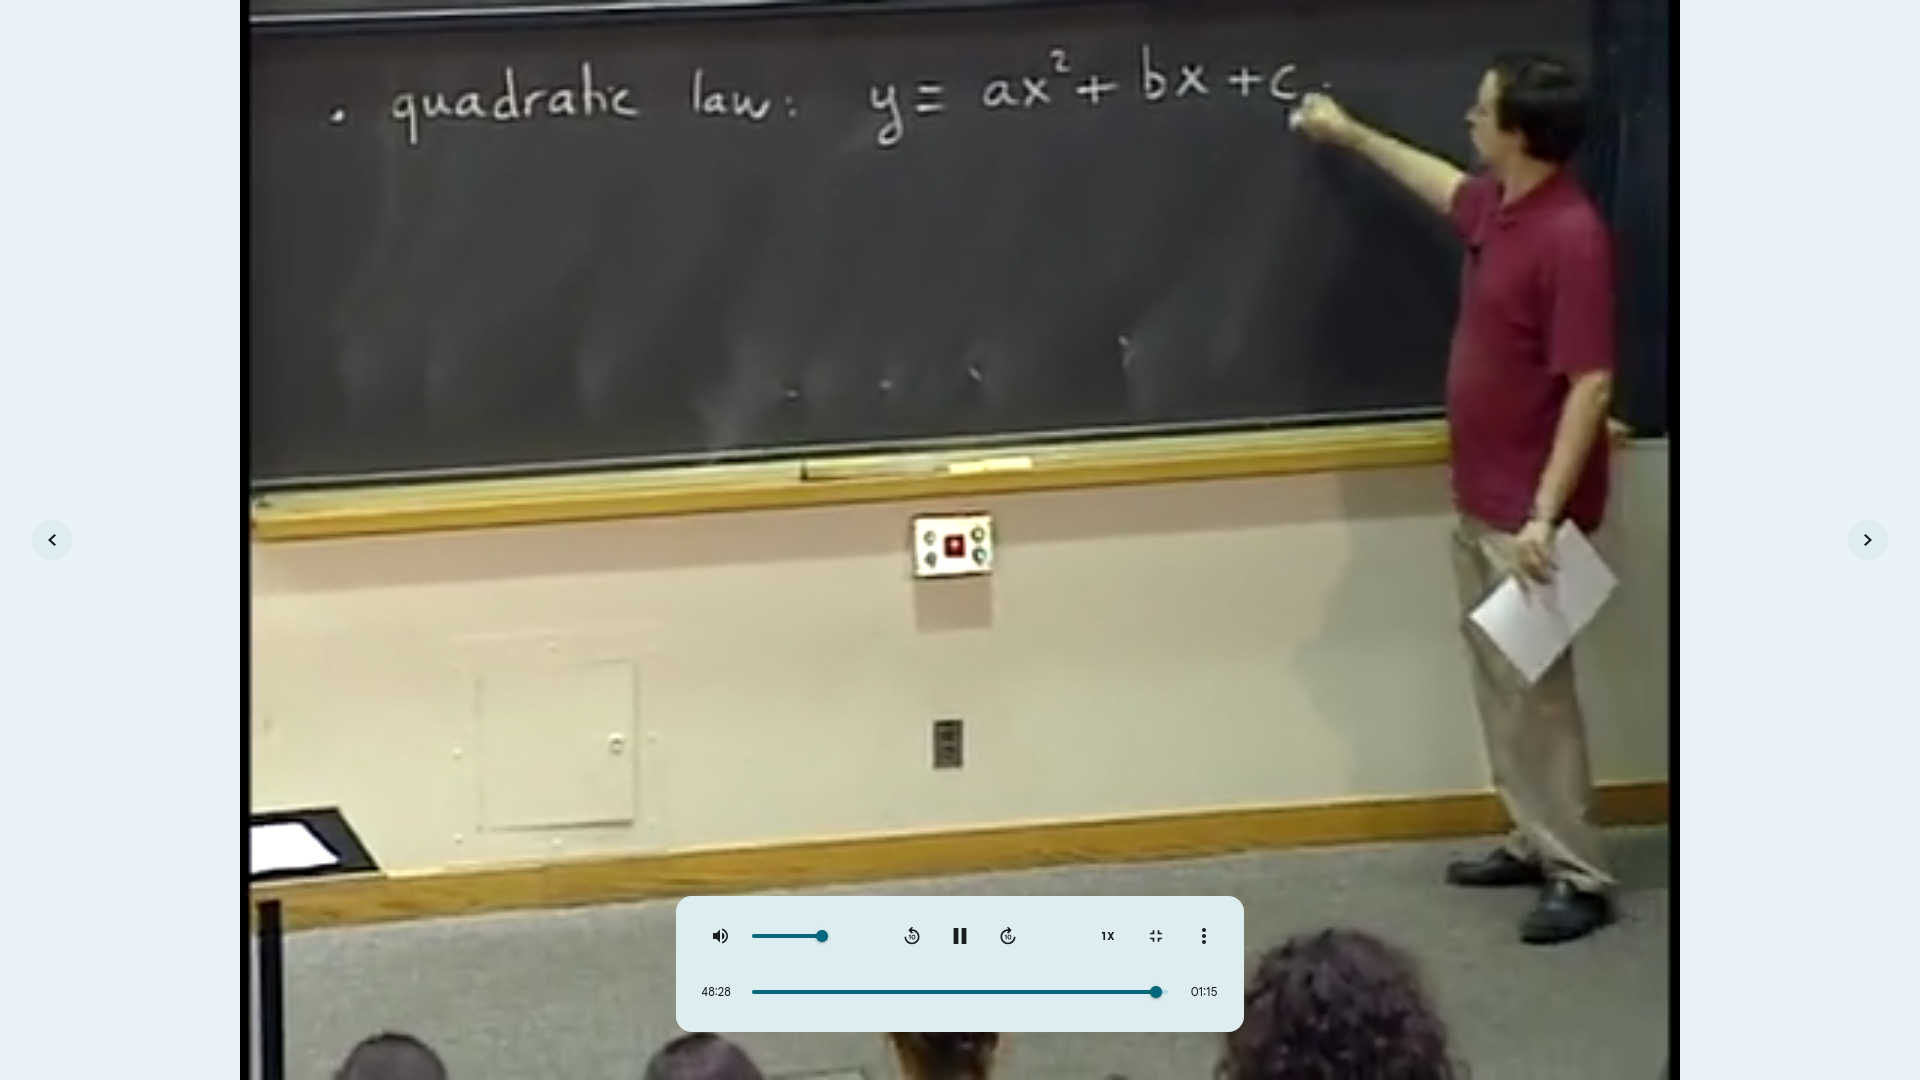 • quadratic law: y = ax² + bx + c.
1X
48:28 01:15